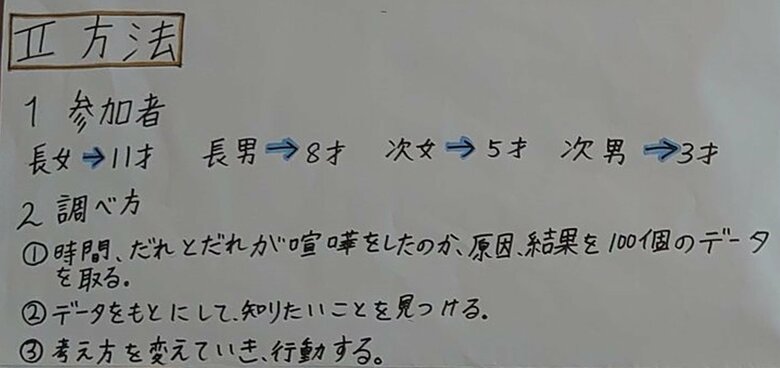 Ⅱ 方法
1 参加者
長女→11才 長男→8才 次女→5才 次男→3才
2 調べ方
①時間、だれとだれが喧嘩をしたのか、原因、結果を100個のデータ
を取る。
②データをもとにして、知りたいことを見つける。
③考え方を変えていき、行動する。